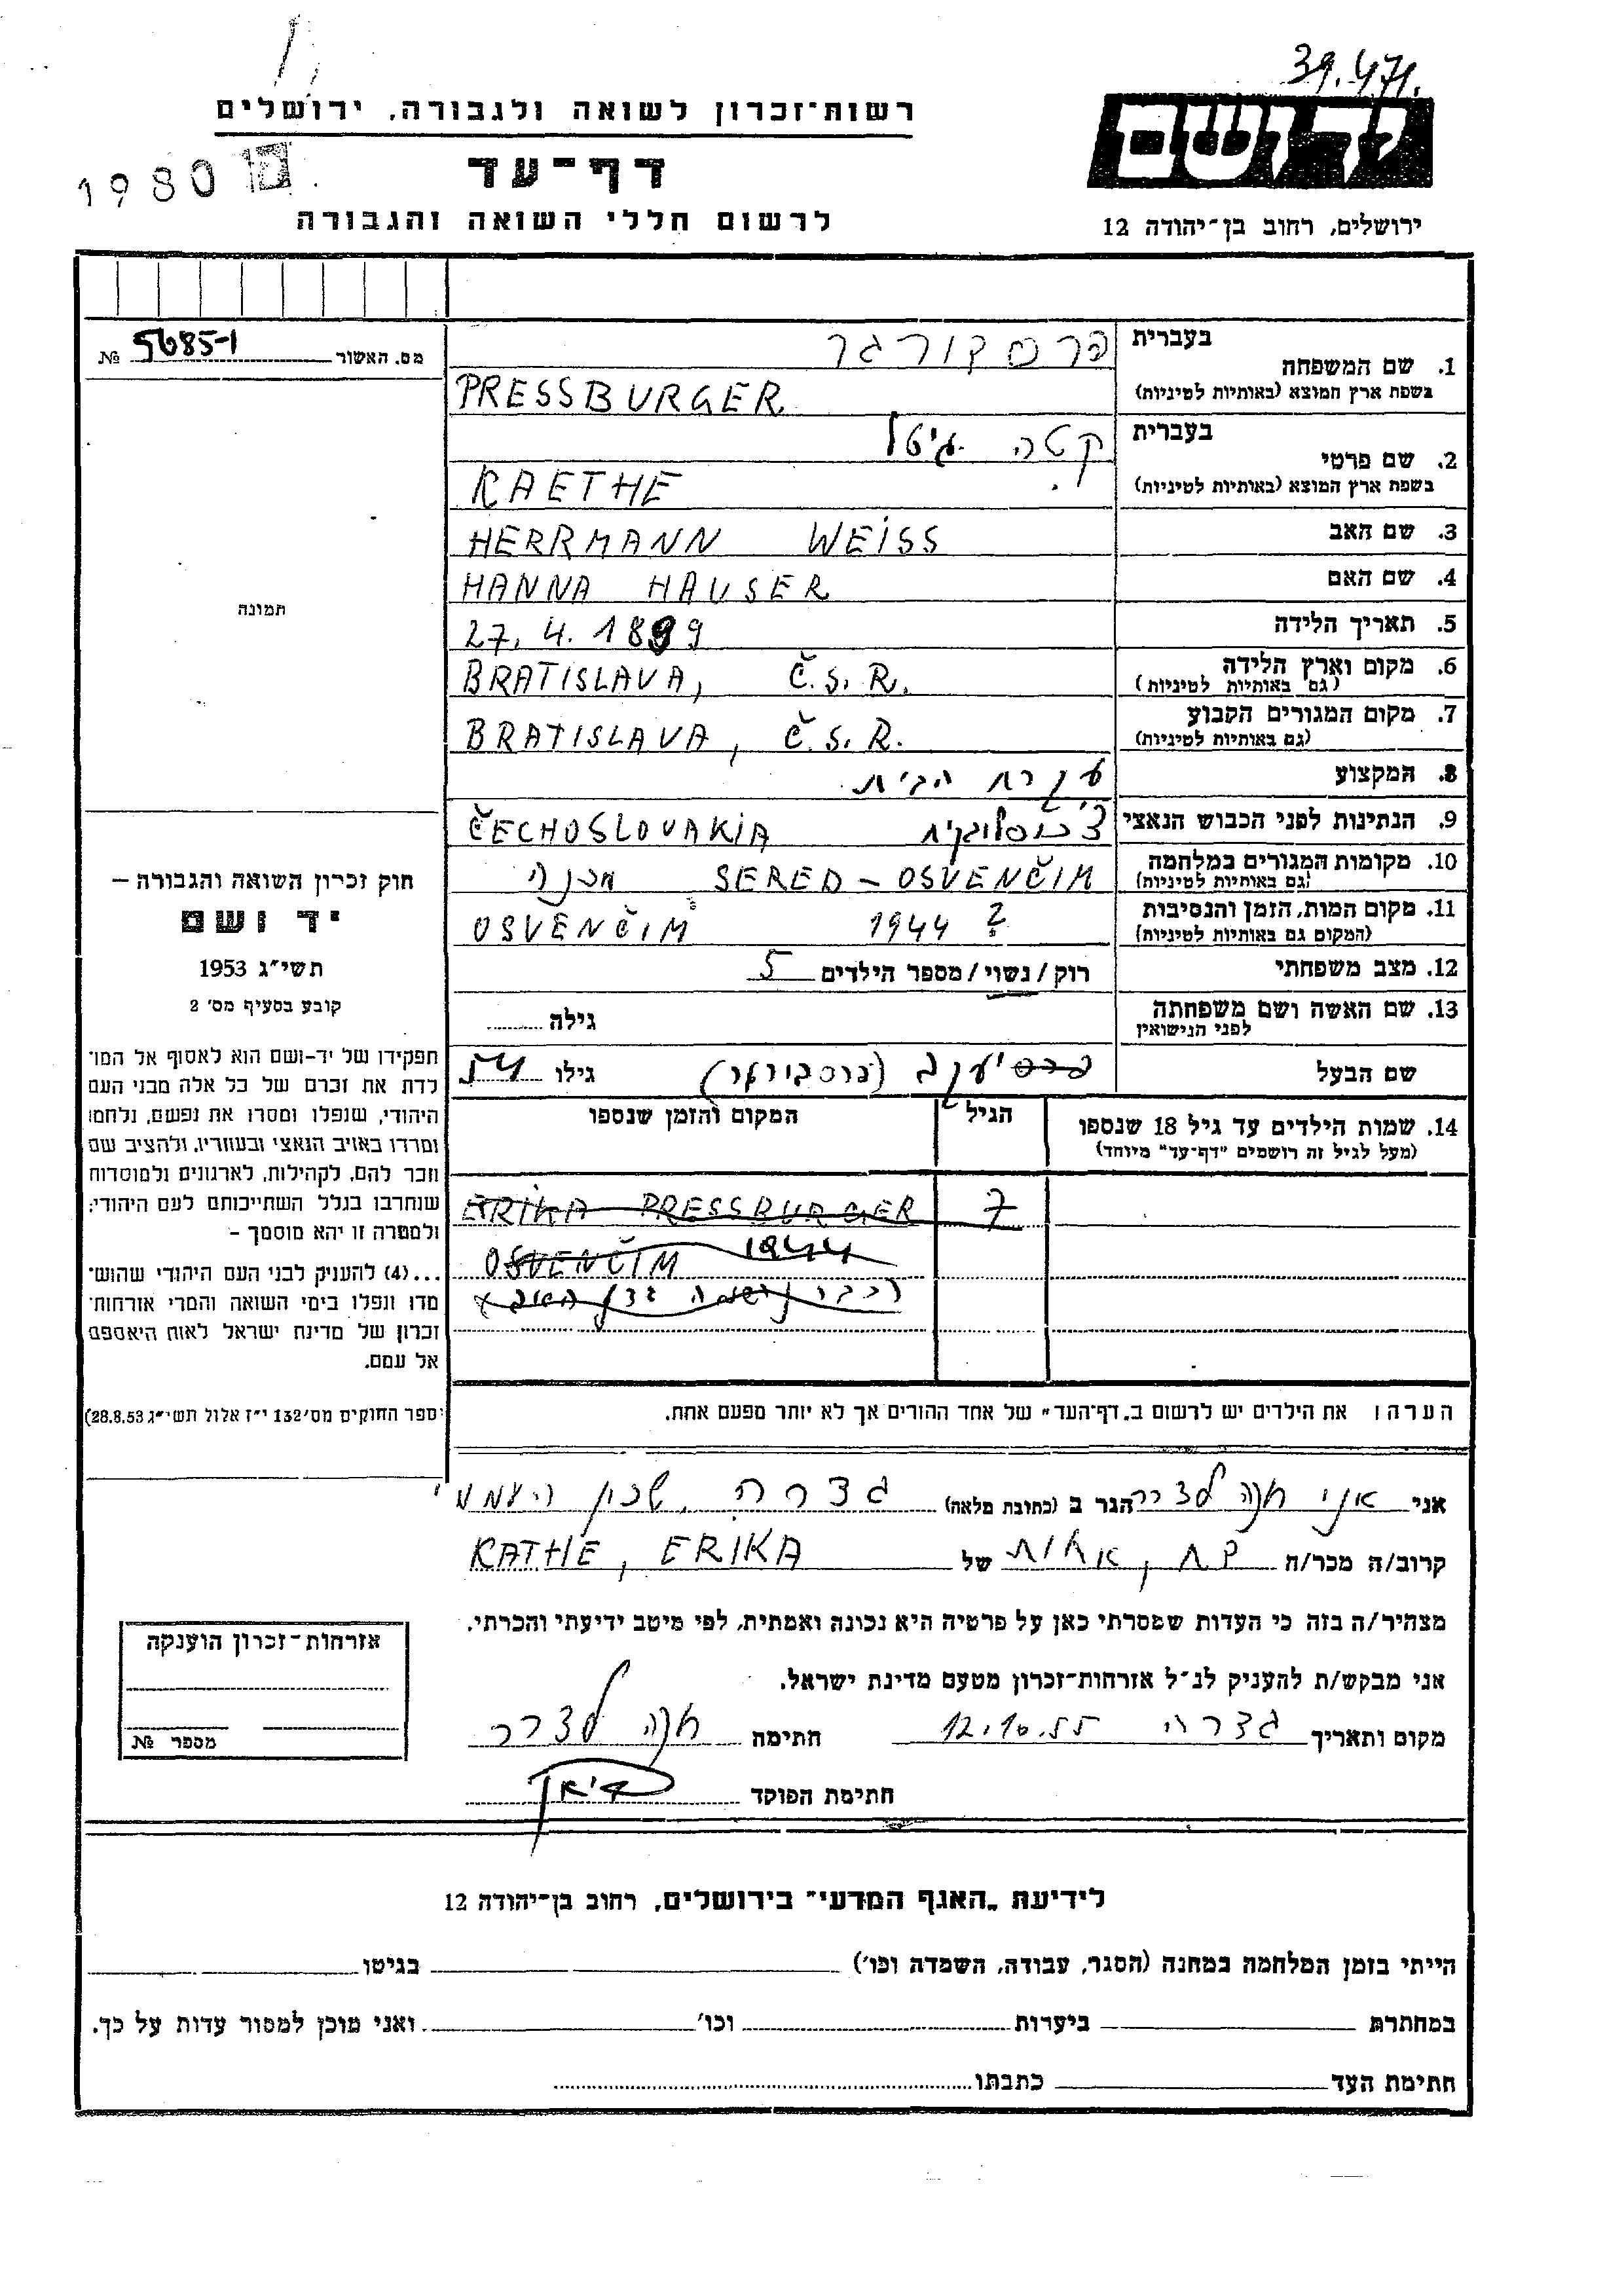 39.471.
רשות־זכרון לשואה ולגבורה, ירושלים
יד ושם
דף־עד
1980
לרשום חללי השואה והגבורה
ירושלים, רחוב בן־יהודה 12
מס. האשור 5685-1 №
1. שם המשפחה
בעברית פרסבורגר
בשפת ארץ המוצא (באותיות לטיניות) PRESSBURGER
2. שם פרטי
בעברית קטה גיטל
בשפת ארץ המוצא (באותיות לטיניות) KAETHE
3. שם האב HERRMANN WEISS
4. שם האם HANNA HAUSER
5. תאריך הלידה 27. 4. 1899
6. מקום וארץ הלידה BRATISLAVA, Č.S.R.
(גם באותיות לטיניות)
7. מקום המגורים הקבוע BRATISLAVA, Č.S.R.
(גם באותיות לטיניות)
8. המקצוע עקרת הבית
9. הנתינות לפני הכבוש הנאצי ČECHOSLOVAKIA
10. מקומות המגורים במלחמה SERED – OSVENČIM מחנה
(גם באותיות לטיניות)
11. מקום המות, הזמן והנסיבות OSVENČIM 1944 ?
(המקום גם באותיות לטיניות)
12. מצב משפחתי רוק/נשוי/מספר הילדים 5
13. שם האשה ושם משפחתה
לפני הנישואין
גילה
שם הבעל יעקב (פרסבורגר) גילו 54
14. שמות הילדים עד גיל 18 שנספו
(מעל לגיל זה רושמים "דף־עד" מיוחד)
הגיל
המקום והזמן שנספו
ERIKA PRESSBURGER 7
OSVENČIM 1944
הערה: את הילדים יש לרשום ב„דף־העד" של אחד ההורים אך לא יותר מפעם אחת.
תמונה
חוק זכרון השואה והגבורה –
יד ושם
תשי"ג 1953
קובע בסעיף מס' 2
תפקידו של יד-ושם הוא לאסוף אל המו־
לדת את זכרם של כל אלה מבני העם
היהודי, שנפלו ומסרו את נפשם, נלחמו
ומרדו באויב הנאצי ובעוזריו, ולהציב שם
וזכר להם, לקהילות, לארגונים ולמוסדות
שנחרבו בגלל השתייכותם לעם היהודי;
ולמטרה זו יהא מוסמך –
...(4) להעניק לבני העם היהודי שהוש־
מדו ונפלו בימי השואה והמרי אזרחות־
זכרון של מדינת ישראל לאות היאספם
אל עמם.
(ספר החוקים מס' 132 י"ז אלול תשי"ג 28.8.53)
אני חנה לצרר הגר ב (כתובת מלאה) גדרה, שכון
קרוב/ה מכר/ה בת, אחות של KATHE, ERIKA
מצהיר/ה בזה כי העדות שמסרתי כאן על פרטיה היא נכונה ואמתית, לפי מיטב ידיעתי והכרתי.
אני מבקש/ת להעניק לנ"ל אזרחות־זכרון מטעם מדינת ישראל.
מקום ותאריך גדרה 12.10.55 חתימה חנה לצרר
חתימת הפוקד
אזרחות־זכרון הוענקה
מספר №
לידיעת „האגף המדעי" בירושלים, רחוב בן־יהודה 12
הייתי בזמן המלחמה במחנה (הסגר, עבודה, השמדה וכו') בגיטו
במחתרת ביערות וכו' ואני מוכן למסור עדות על כך.
חתימת העד כתבתו